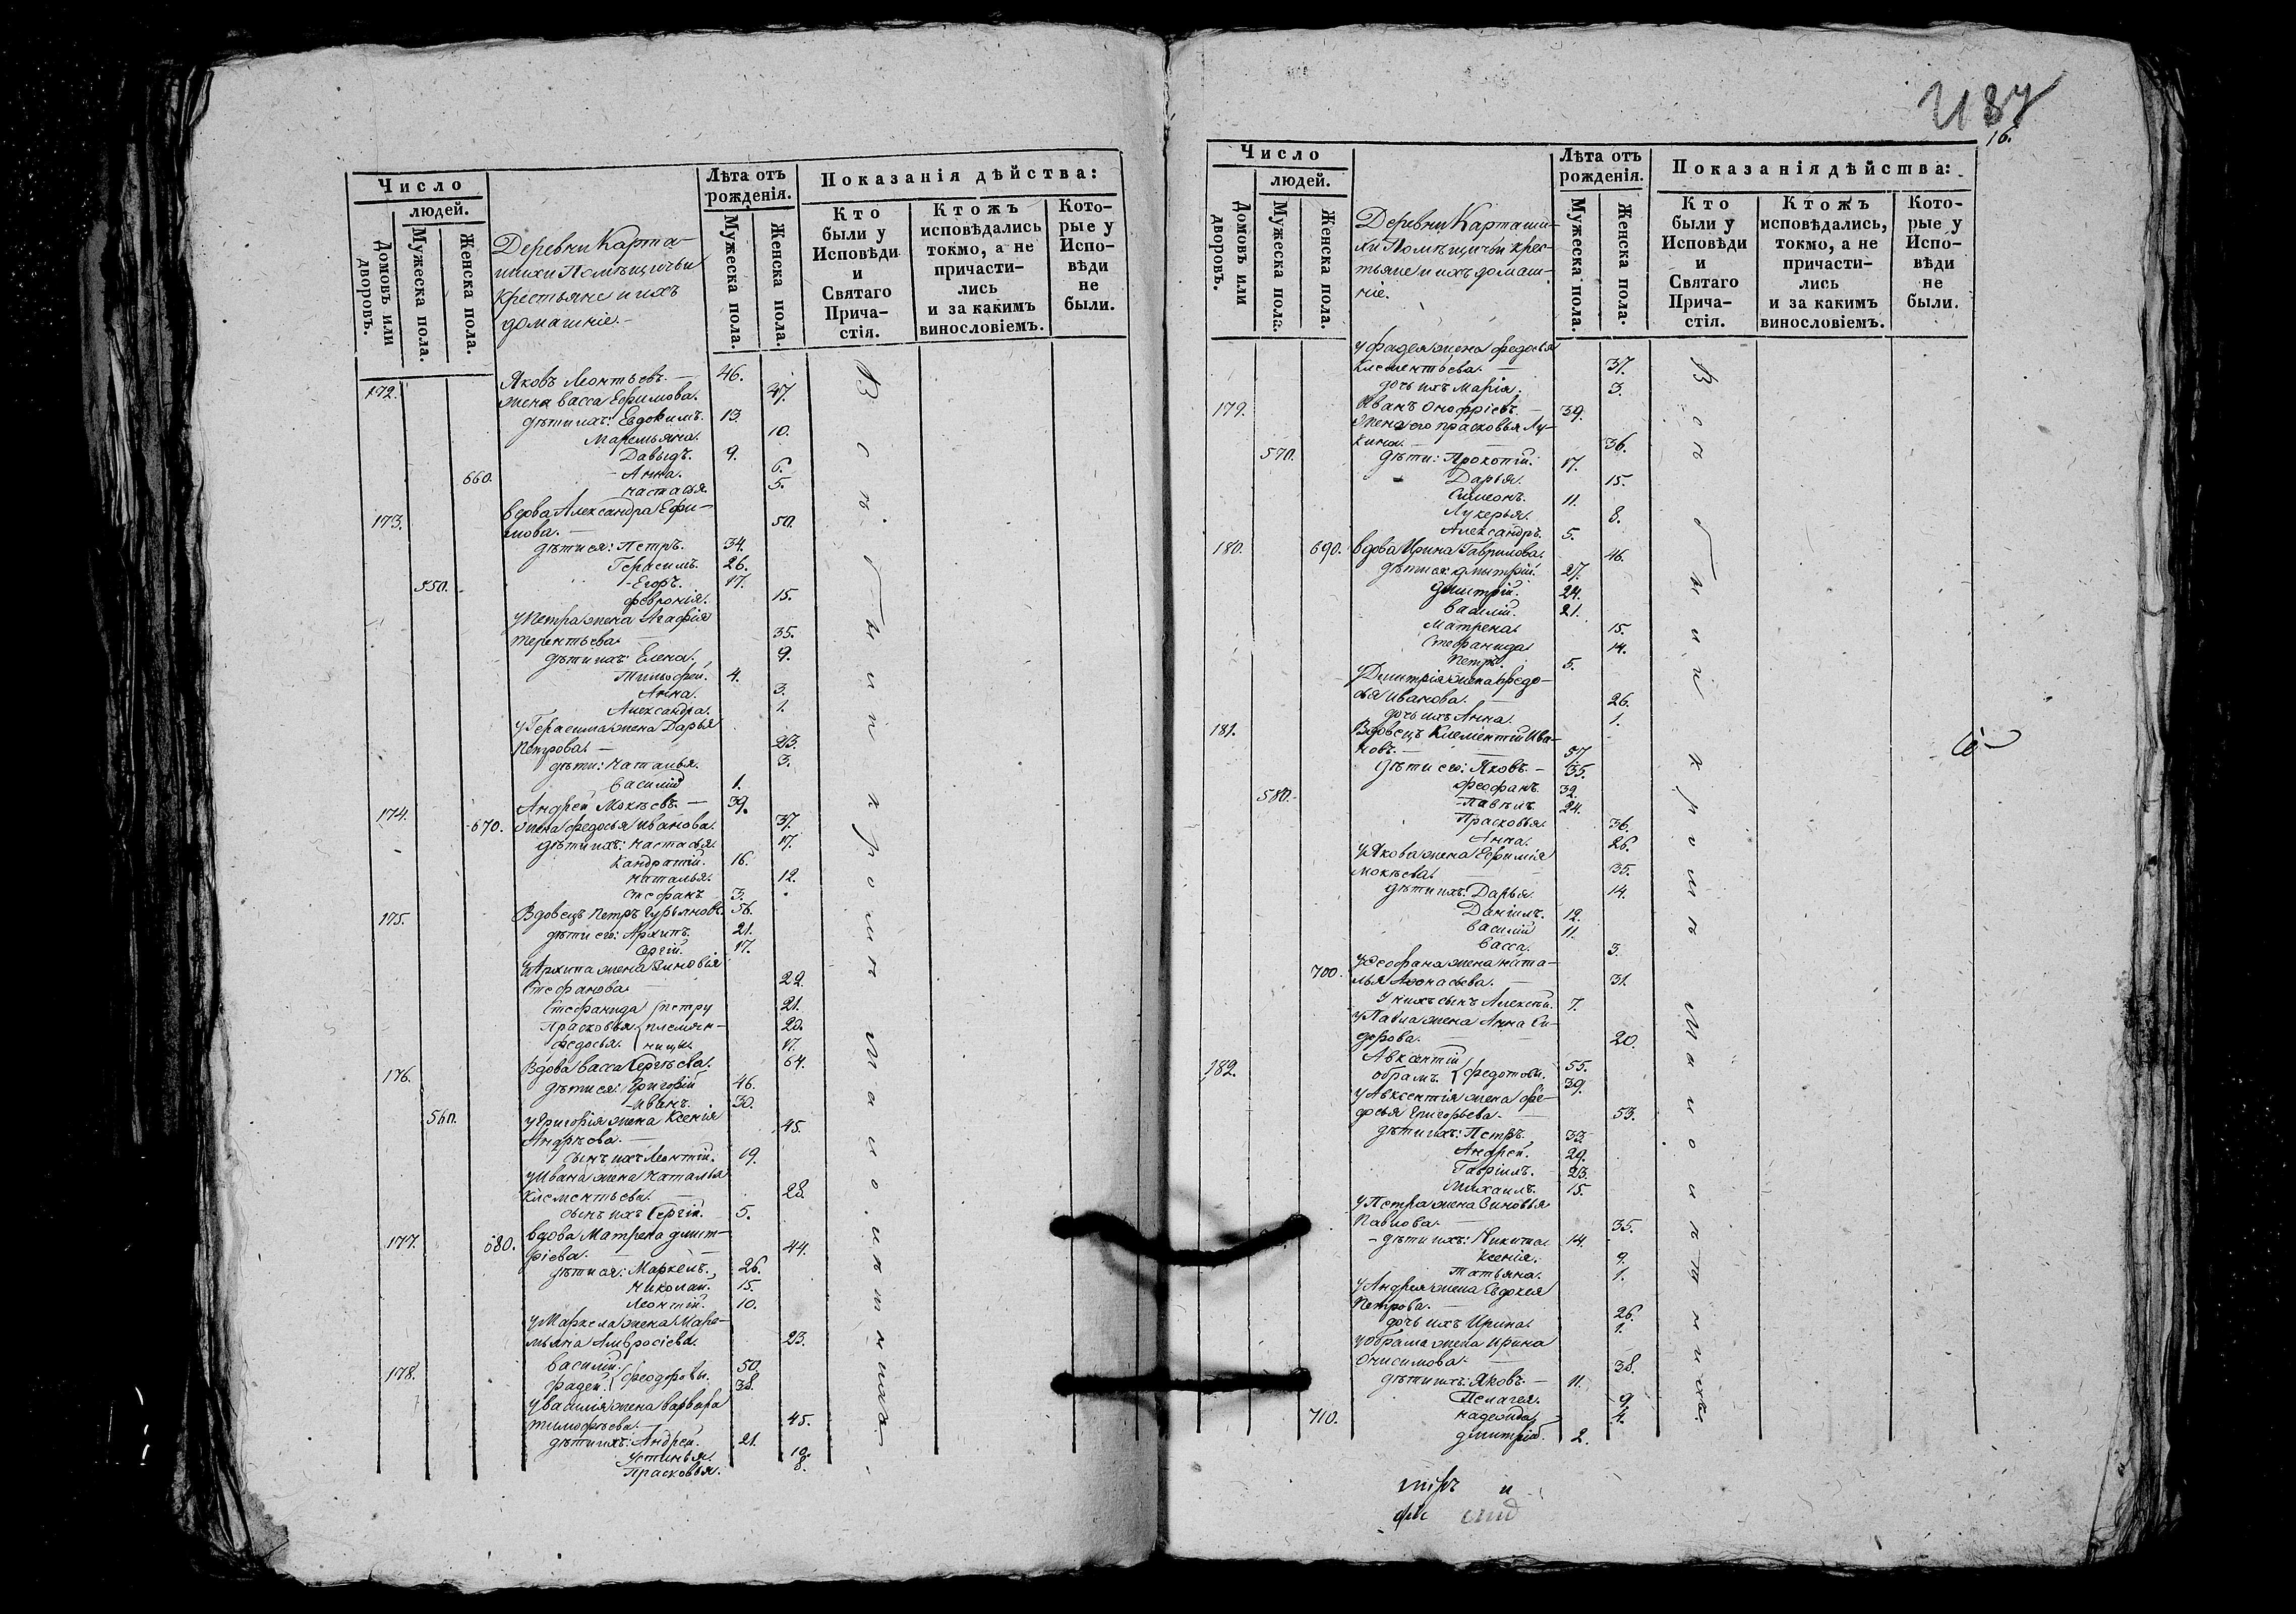 Число
людей.
Домовъ или дворовъ.
Мужеска пола.
Женска пола.
Деревни Карта-
шихи Помѣщичьи
крестьяне и ихъ
домашніе.
Лѣта отъ рожденія.
Мужеска пола.
Женска пола.
Показанія дѣйства:
Кто были у Исповѣди и Святаго Прича-стія.
Ктожъ исповѣдались токмо, а не причасти-лись и за какимъ винословіемъ.
Кото-рые у Испо-вѣди не были.
172. Яковъ Леонтьевъ. 46.
жена васса Ефимова. 47.
дѣти ихъ: Евдокимъ. 13.
Маремьяна. 10.
Давыдъ. 9.
660. Анна. 6.
настасья. 5.
173. вдова Александра Ефи-
мова. 50.
дѣти ея: Петръ. 34.
Герасимъ. 26.
550. Егоръ. 17.
февронія. 15.
у Петра жена Агафія
терентьева. 35.
дѣти ихъ: Елена. 9.
Тимофей. 4.
Анна. 3.
Александра. 1.
у Герасима жена Дарья
Петрова. 23.
дѣти: наталья. 3.
василій 1.
174. Андрей Мокѣевъ. 39.
670. жена федосья иванова. 37.
дѣти ихъ: настасья. 17.
Кандратій. 16.
наталья. 12.
стефанъ 3.
175. Вдовецъ Петръ Гурьяновъ. 56.
дѣти его: Архипъ. 21.
Сергій. 17.
у Архипа жена Зиновія
Стефанова 22.
Стефанида петру 21.
Прасковья племян- 20.
федосья. ницы. 17.
176. Вдова васса Сергѣева. 64.
дѣти ея: Григорій 46.
Иванъ. 30.
560. у Григорія жена Ксенія
Андрѣева. 45.
сынъ ихъ Леонтій. 19.
у Ивана жена наталья
клементьева. 28.
сынъ ихъ Сергій. 5.
177. 680. вдова Матрена дмит-
ріева. 44.
дѣти ея: Маркелъ. 26.
николай. 15.
Леонтій. 10.
у Маркела жена Маре-
мьяна Амвросіева. 23.
178. василій. феодоровы. 50.
фадей. 38.
у василія жена варвара
тимофѣева. 45.
дѣти ихъ: Андрей. 21.
Устинья. 12.
Прасковья. 8.
Всѣ были и кромѣ малолѣтнихъ.
437
16.
Число
людей.
Домовъ или дворовъ.
Мужеска пола.
Женска пола.
Деревни Карташи-
хи Помѣщичьи крес-
тьяне и ихъ домаш-
ніе.
Лѣта отъ рожденія.
Мужеска пола.
Женска пола.
Показанія дѣйства:
Кто были у Исповѣди и Святаго Прича-стія.
Ктожъ исповѣдались, токмо, а не причасти-лись и за какимъ винословіемъ.
Кото-рые у Испо-вѣди не были.
у фадея жена федосья
клементьева. 37.
дочь ихъ Марія. 3.
179. Иванъ Онофріевъ. 39.
жена его прасковья Лу-
кина. 36.
570. дѣти: Прокопій. 17.
Дарья. 15.
Симеонъ. 11.
Лукерья. 8.
Александръ. 5.
180. 690. вдова Ирина Гаврилова. 46.
дѣти ея: дмитрій. 27.
Дмитрій. 24.
василій. 21.
Матрена. 15.
Стефанида 14.
Петръ. 5.
у Дмитрія жена федо-
сья иванова. 26.
дочь ихъ Анна. 1.
181. Вдовецъ Клементій Ива-
новъ. 57.
дѣти его: Яковъ. 35.
феофанъ. 32.
580. Павелъ. 24.
Прасковья. 36.
Анна. 26.
у Якова жена Ефимія
мокѣева. 35.
дѣти ихъ: Дарья. 14.
Даніилъ. 12.
василій 11.
васса. 3.
у феофана жена ната-
700. лья Афонасьева. 31.
у нихъ сынъ Алексѣй. 7.
у Павла жена Анна Си-
дорова. 20.
182. Авксентій федотовы. 55.
обрамъ. 39.
у Авксентія жена фе-
досья Григорьева. 53.
дѣти ихъ: Петръ. 33.
Андрей. 29.
Гавріилъ. 23.
Михаилъ. 15.
у Петра жена Зиновья
Павлова. 35.
дѣти ихъ: Никита 14.
Ксенія. 9.
Татьяна. 1.
у Андрея жена Евдокея
Петрова. 26.
дочь ихъ Ирина. 1.
у обрама жена Ирина
Онисимова. 38.
дѣти ихъ: Яковъ. 11.
Пелагея. 9.
710. надежда. 4.
дмитрій. 2.
Всѣ были кромѣ малолѣтнихъ.